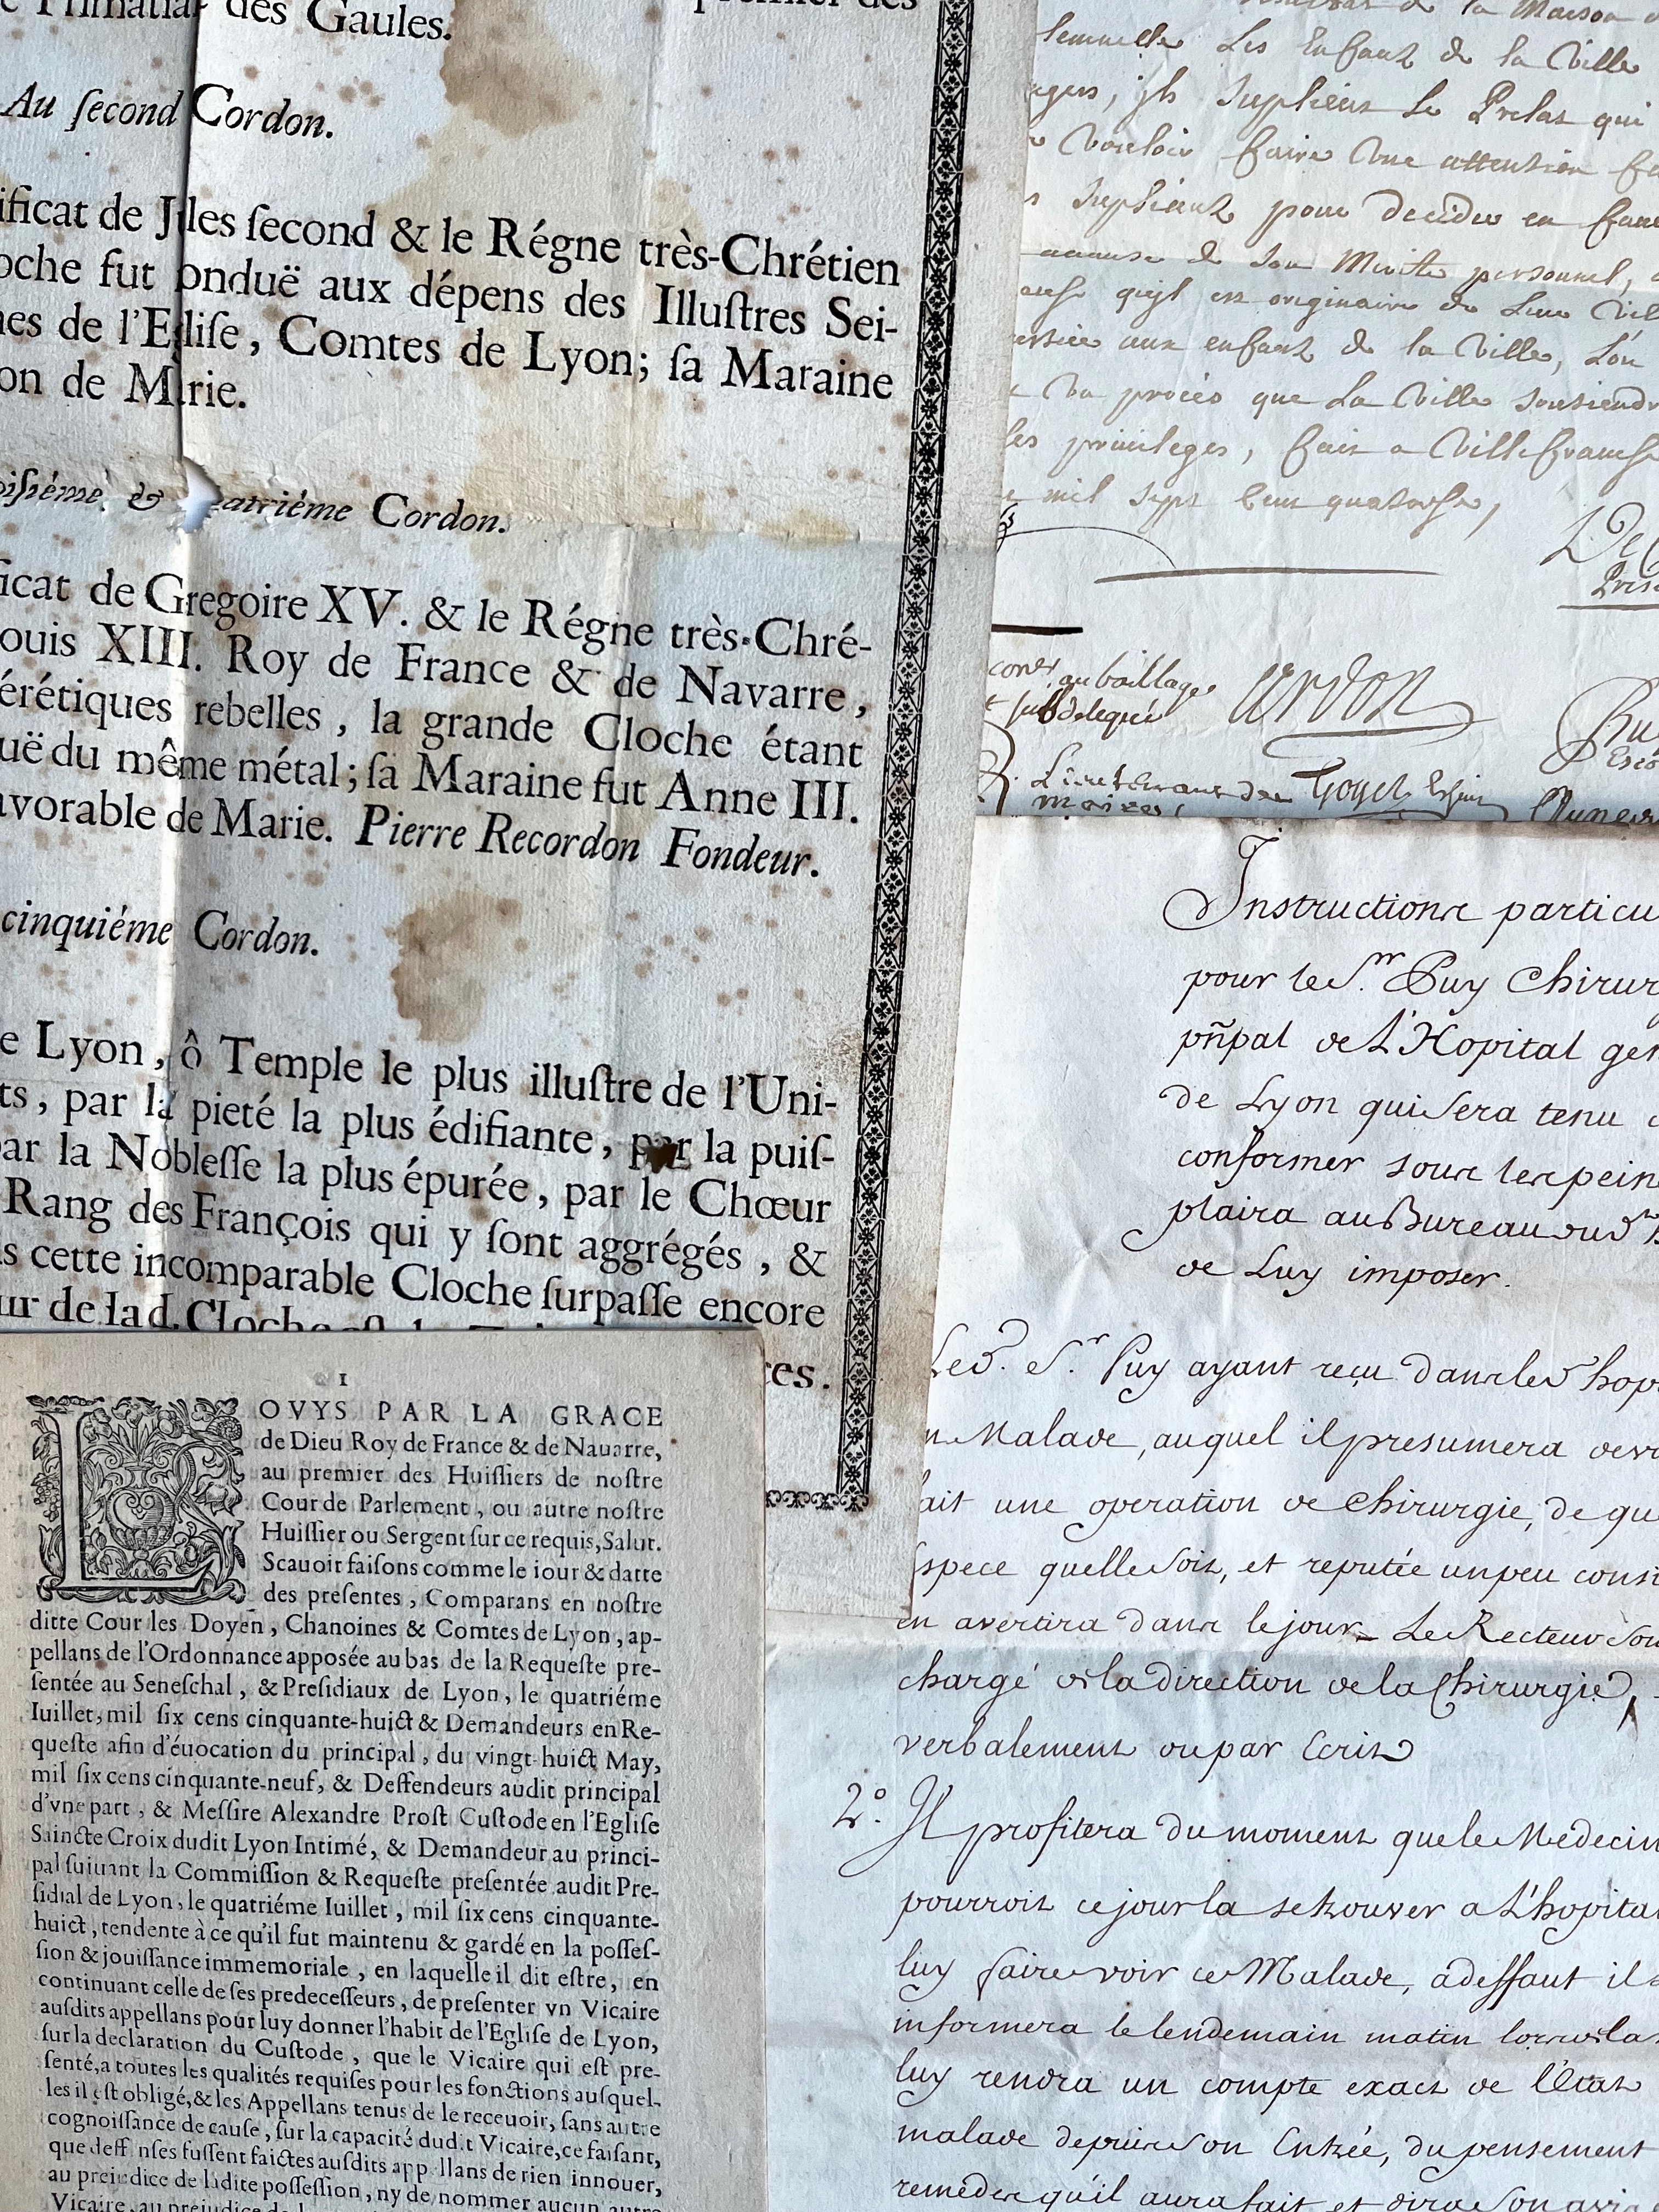 des Gaules.
Au ſecond Cordon.
ificat de J les ſecond & le Régne très-Chrétien
oche fut onduë aux dépens des Illuſtres Sei-
nes de l'E liſe, Comtes de Lyon; ſa Maraine
on de M rie.
oiſiéme, & atriéme Cordon.
icat de Gregoire XV. & le Régne très-Chré-
ouis XIII. Roy de France & de Navarre,
érétiques rebelles, la grande Cloche étant
uë du même métal; ſa Maraine fut Anne III.
avorable de Marie. Pierre Recordon Fondeur.
cinquiéme Cordon.
e Lyon, ô Temple le plus illuſtre de l'Uni-
ts, par la pieté la plus édifiante, par la puiſ-
ar la Nobleſſe la plus épurée, par le Chœur
Rang des François qui y ſont aggrégés, &
s cette incomparable Cloche ſurpaſſe encore
ur de lad. Cloche
es.
de la Maison
les Enfant de la Ville
jls suplient le Prelat qui
vouloir faire vne attention
supliant pour decider en
de son Merite personnel,
qujl est originaire de Leur
aux enfant de la Ville, L'on
procès que La Ville soutiendr
les privileges, fait a Villefranche
mil sept Cent quatorse,
conr. au baillage
subdelegué
Lieutenant des
Instructions particu
pour le Sr. Puy Chirur
pñpal de L'Hopital gen
de Lyon qui sera tenu
conformer sous les pein
plaira au Bureau
de Luy imposer.
Led. Sr. Puy ayant reçu dans led hop
n Malade, auquel il presumera
ait une operation de chirurgie, de qu
espece quelle soit, et reputée un peu consi
en avertira dans le jour Le Recteur
chargé de la direction de la Chirurgie,
verbalement ou par Ecrit
2o. Il profitera du moment que le Medecin
pourroit ce jour la se trouver a L'hopital
luy faire voir ce Malade, a deffaut il
informera le lendemain matin
luy rendra un compte exact de l'Etat
malade depuis son Entrée, du pensement
remedes qu'il aura fait et dira son avis
I
LOVYS PAR LA GRACE
de Dieu Roy de France & de Nauarre,
au premier des Huiſſiers de noſtre
Cour de Parlement, ou autre noſtre
Huiſſier ou Sergent ſur ce requis, Salut.
Scauoir faiſons comme le iour & datte
des preſentes, Comparans en noſtre
ditte Cour les Doyen, Chanoines & Comtes de Lyon, ap-
pellans de l'Ordonnance apposée au bas de la Requeſte pre-
ſentée au Seneſchal, & Preſidiaux de Lyon, le quatriéme
Iuillet, mil ſix cens cinquante-huict & Demandeurs en Re-
queſte afin d'éuocation du principal, du vingt-huict May,
mil ſix cens cinquante-neuf, & Deffendeurs audit principal
d'vne part, & Meſſire Alexandre Proſt Cuſtode en l'Egliſe
Saincte Croix dudit Lyon Intimé, & Demandeur au princi-
pal ſuiuant la Commiſſion & Requeſte preſentée audit Pre-
ſidial de Lyon, le quatriéme Iuillet, mil ſix cens cinquante-
huict, tendente à ce qu'il fut maintenu & gardé en la poſſeſ-
ſion & jouiſſance immemoriale, en laquelle il dit eſtre, en
continuant celle de ſes predeceſſeurs, de preſenter vn Vicaire
auſdits appellans pour luy donner l'habit de l'Egliſe de Lyon,
ſur la declaration du Cuſtode, que le Vicaire qui eſt pre-
ſenté, a toutes les qualités requiſes pour les fonctions auſquel-
les il eſt obligé, & les Appellans tenus de le receuoir, ſans autre
cognoiſſance de cauſe, ſur la capacité dudit Vicaire, ce faiſant,
que deff nſes fuſſent faictes auſdits app llans de rien innouer,
au preiudice de ladite poſſeſſion, ny de nommer aucun autre
Vicaire, au preiudice